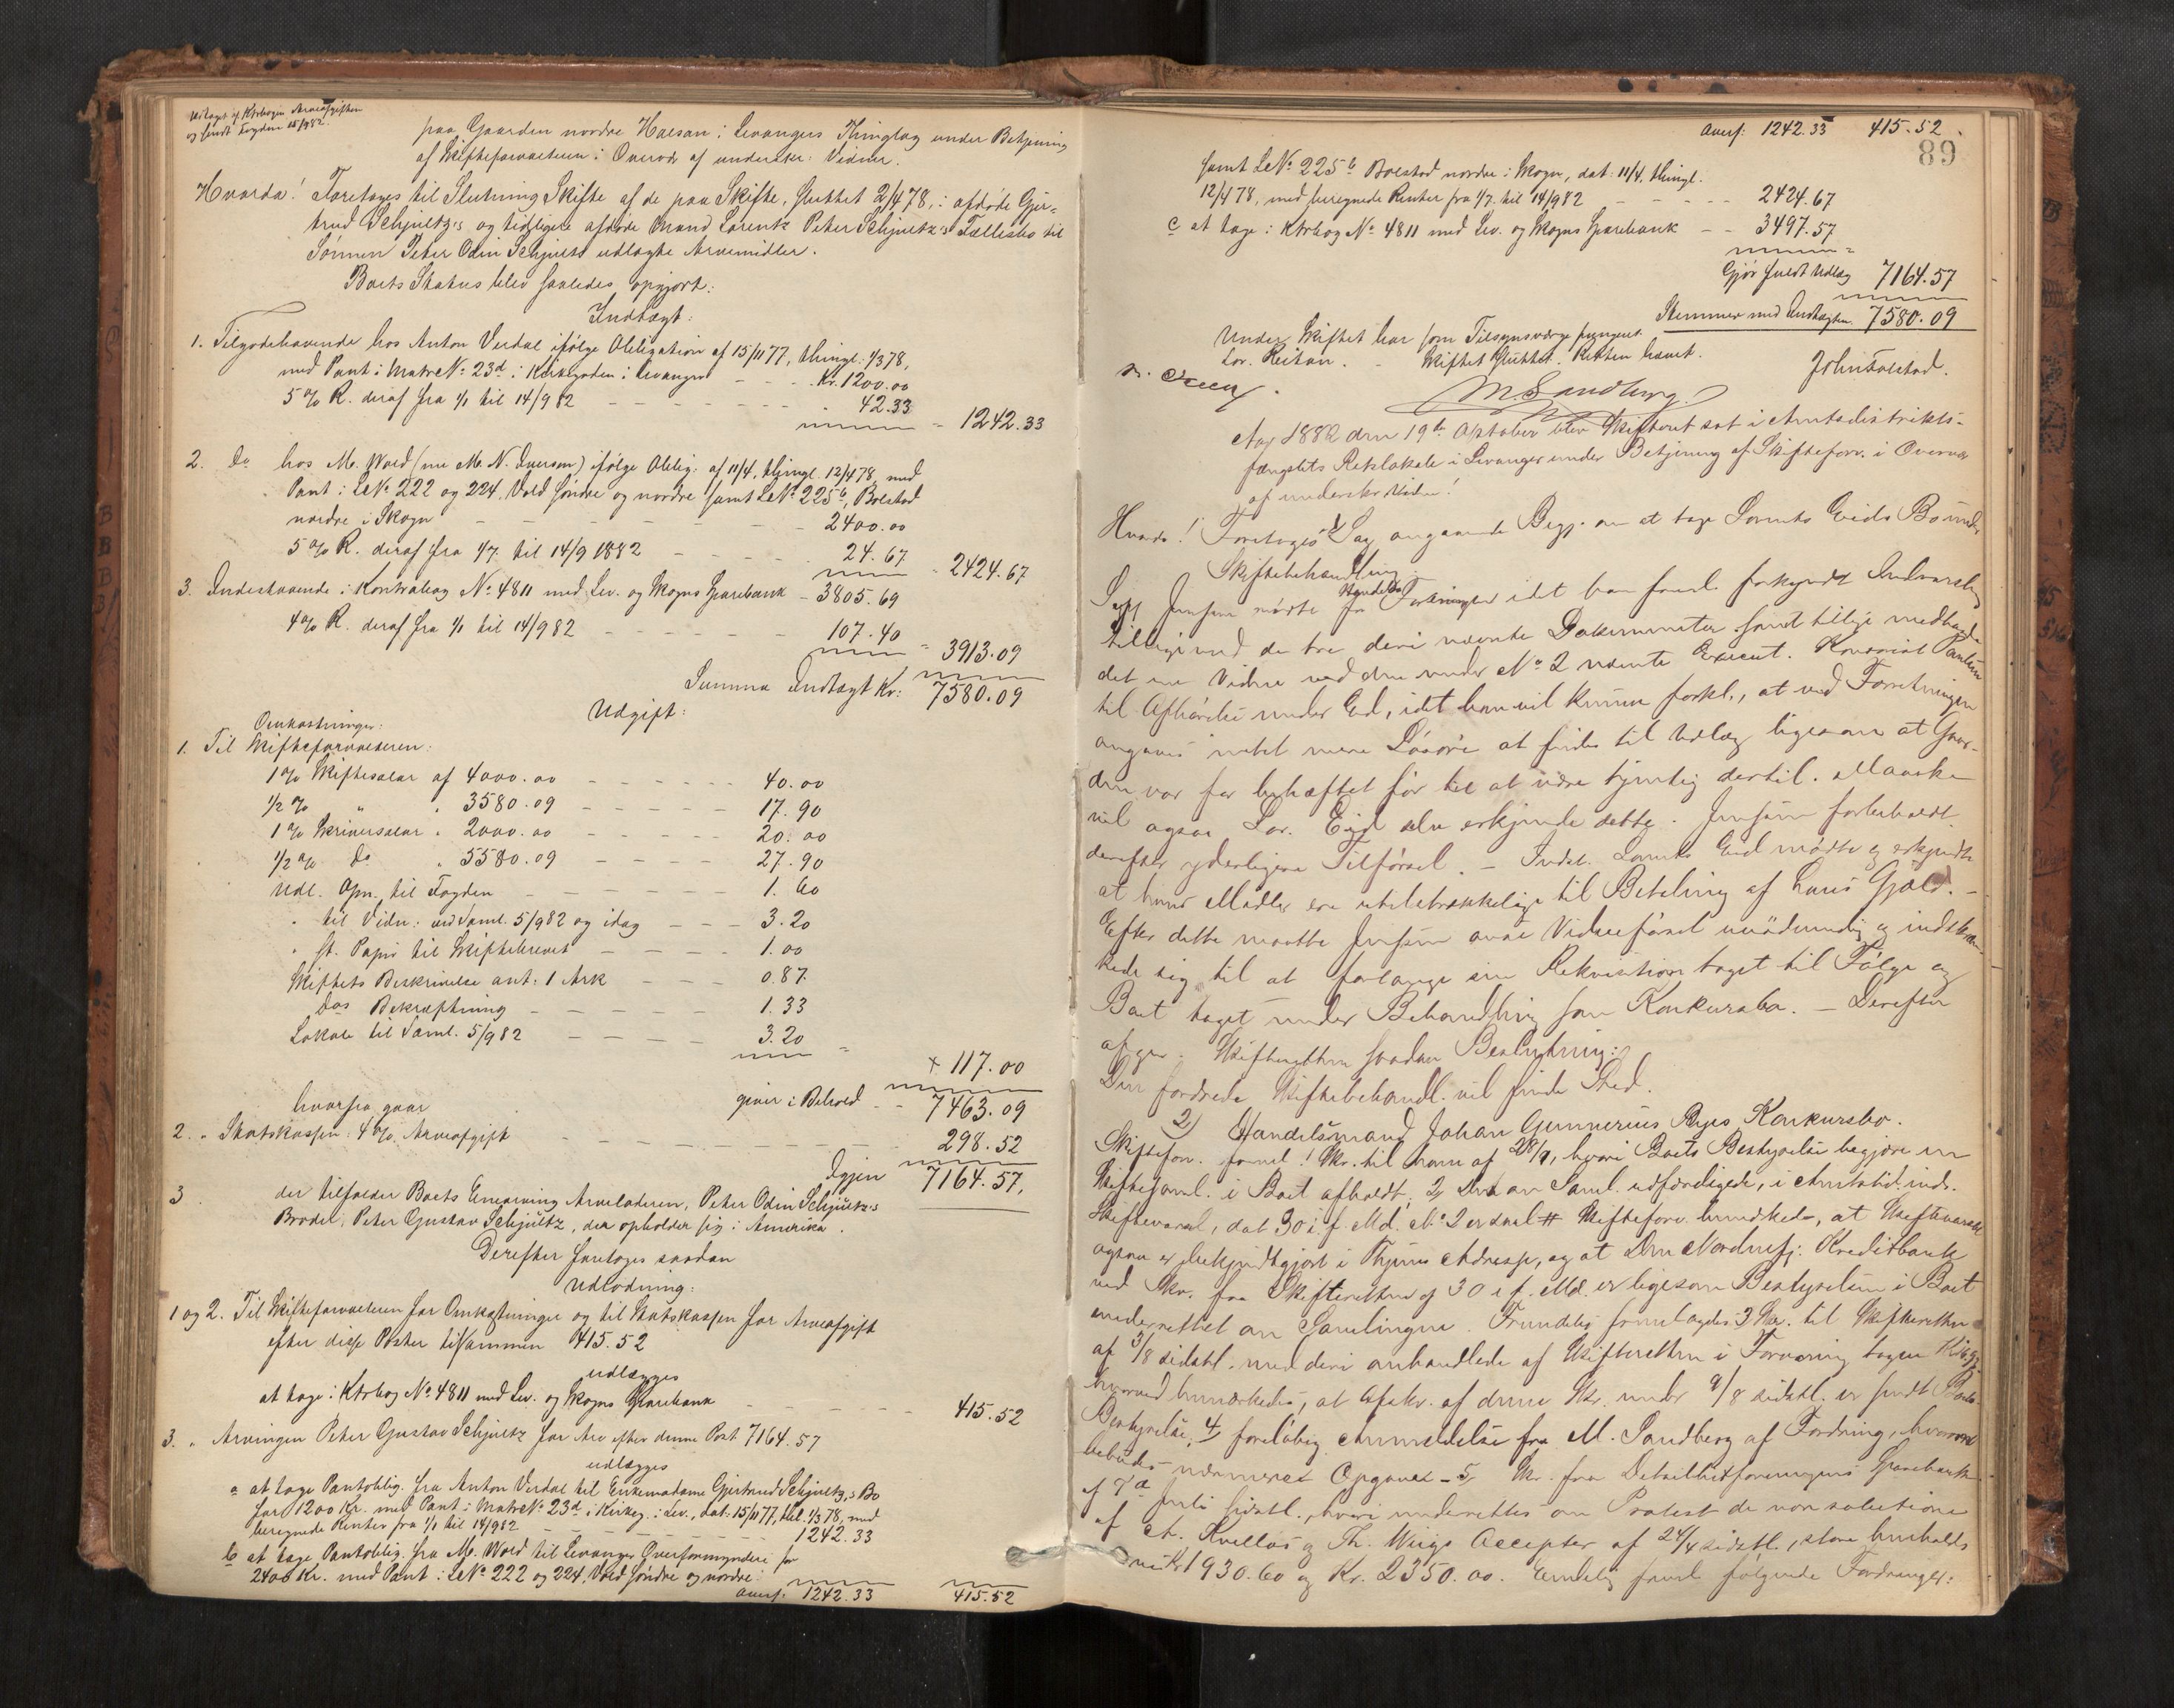 Udtaget af Ktrbogen Arveafgiften
og sendt Fogden 15/9 82.
paa Gaarden nordre Halsan i Levangers Thinglag under Betjening
af Skifteforvalteren i Overvær af underskr: Vidner.
Hvorda! Foretages til Slutning Skifte af de paa Skifte, sluttet 2/4 78, i afdøde Gjer-
trud Schjultz's og tidligere afdøde Mand Lorentz Peter Schjultz's Fællesbo til
Sønnen Peter Odin Schjultz udlagte Arvemidler.
Boets Status blev saaledes opgjort:
Indtægt:
1. Tilgodehavende hos Anton Verdal ifølge Obligation af 15/11 77, thingl. 1/3 78,
med Pant i Matr No 23d i Kirkegaden i Levanger - - - Kr. 1200.00
5 % R. deraf fra 1/1 til 14/9 82 - - - - - - 42.33
= 1242.33
2. Do hos M. Wold (nu M. N. Iversen) ifølge Oblig: af 11/4, thingl. 12/4 78, med
Pant i L No 222 og 224, Vold søndre og nordre samt L No 225b, Bolstad
nordre i Skogn - - - - - - 2400.00
5 % R. deraf fra 1/7 til 14/9 1882 - - - - 24.67
= 2424.67
3. Indestaaende i Kontrabog No 4811 med Lev. og Skogns Sparebank - 3805.69
4 % R. deraf fra 1/1 til 14/9 82 - - - - - - 107.40
= 3913.09
Summa Indtægt Kr: 7580.09
Udgift:
Omkostninger:
1. Til Skifteforvalteren:
1 % Skiftesalær af 4000.00 - - - - - - 40.00
1/2 % " . 3580.09 - - - - - 17.90
1 % Skriversalær . 2000.00 - - - - - 20.00
1/2 % Do . 5580.09 - - - - 27.90
Udl. Opn. til Fogden - - - - - - 1.60
" til Vidn: ved Saml. 5/9 82 og idag - - - 3.20
" st. Papir til Skiftebrevet - - - - 1.00
Skiftets Beskrivelse ant: 1 Ark - - - 0.87
Dos Bekræftning - - - - - 1.33
Lokale til Saml. 5/9 82 - - - - 3.20
= + 117.00
giver i Behold - - 7463.09
hvorfra gaar
2. " Statskassen: 4 % Arveafgift - - - - - - 298.52
Igjen 7164.57,
3. der tilfalder Boets Enearving Arveladeren, Peter Odin Schjultz's
Broder, Peter Gustav Schjültz, der opholder sig i Amerika.
Derefter foretoges saadan
Udlodning:
1 og 2. Til Skifteforvalteren for Omkostninger og til Statskassen for Arveafgift
efter disse Poster tilsammen 415.52
udlægges
at tage i Ktrbog No 4811 med Lev. og Skogns Sparebank - - - - - - 415.52
3. " Arvingen Peter Gustav Schjultz for Arv efter denne Post 7164.57
udlægges
a at tage Pantoblig. fra Anton Verdal til Enkemadame Gjertrud Schjultz's Bo
for 1200 Kr. med Pant i Matr No 23d i Kirkeg. i Lev., dat. 15/11 77, thl. 1/3 78, med
beregnede Renter fra 1/1 til 14/9 82 - - - 1242.33
b at tage Pantoblig. fra M. Wold til Levanger Overformynderi for
2400 Kr. med Pant i L No 222 og 224, Vold søndre og nordre
Overf. 1242.33 415.52
Overf: 1242.33 415.52
89
samt L No 225b Bolstad nordre i Skogn, dat: 11/4, thingl.
12/4 78, med beregnede Renter fra 1/7 til 14/9 82 - - - - - 2424.67
c at tage i Ktrbog No 4811 med Lev. og Skogns Sparebank - - 3497.57
Gjør fuldt Udlæg 7164.57
Stemmer med Indtægten 7580.09
Under Skiftet har som Tilsynsværge fungeret
Lor. Reitan. - Skiftet sluttet. Retten hævet.
M. Sandberg.
John Tolstad.
Aar 1882 den 19de Oktober blev Skifteret sat i Amtsdistrikts-
fængslets Retslokale i Levanger under Betjening af Skifteforv. i Overvær
af underskr Vidner!
Hvorda! Foretoges 1) Sag angaaende Begj. om at tage Lorents Eids Bo under
Skiftebehandling.
Jensen mødte for idet han freml. forkyndt Indvarsling
tilligemed de tre deri nævnte Dokumenter samt tillige medhavde
det ene Vidne ved den under No 2 nævnte Execut. Pantun
til Afhørelse under Ed, idet han vil kunne forkl., at ved Forretningen
angaves intet mere Løsøre at findes til Udlæg ligesom at Gaar-
den var for behæftet før til at være tjenlig dertil. Maaske
vil ogsaa Lor. Eid selv erkjende dette. Jensen forbeholdt
derefter yderligere Tilførsel. - Indst. Lorents Eid mødte og erkjendte
at hans Midler ere utilstrækkelige til Betaling af hans Gjæld. -
Efter dette maatte Jensen anse Vidneførsel unødvendig og indskræn-
kede sig til at forlange sin Rekvisition taget til Følge og
Boet taget under Behandling som Konkursbo. - Derefter
afgav Skifteretten saadan Beslutning:
Den fordrede Skiftebehandl. vil finde Sted.
2) Handelsmand Johan Gunnerius Ryes Konkursbo.
Skiftefor. freml. 1 Skr. til ham af 28/9, hvori Boets Bestyrelse begjære en
Skiftesaml. i Boet afholdt, 2) Den om Saml. udfærdigede, i Amtstid. inds.
Skiftevarsel, dat 30 i f. Md. Skifteforv. bemærkede, at Skiftevarsel
ogsaa er bekjendtgjort i Thjems Adresse, og at Den Nordenfj: Kreditbank
ved Skr. fra Skifteretten af 30 i f. Md. er ligesom Bestyrelsen i Boet
underrettet om Samlingen. Fremdeles fremlagdes 3 Skr. til Skifteretten
af 5/8 sidstl. med deri omhandlede af Skifteretten i Forvaring tagen
hvorved bemærkedes, at Afskr. af denne Skr. under 9/8 sidstl. er sendt Boets
Bestyrelse, 4) foreløbig Anmeldelse fra M. Sandberg af Fordring, hvorved
bebudes nærmere Opgave - 5, Skr. fra Detaillistforeningens Sparebank
af 7de Juli sidstl., hvori underrettes om Protest de non solutione
af A. Kvellos og Th. Wiigs Accepter af 24/4 sidstl., store henholds
vis Kr 1930.60 og Kr. 2350.00. Endelig freml. følgende Fordringer: